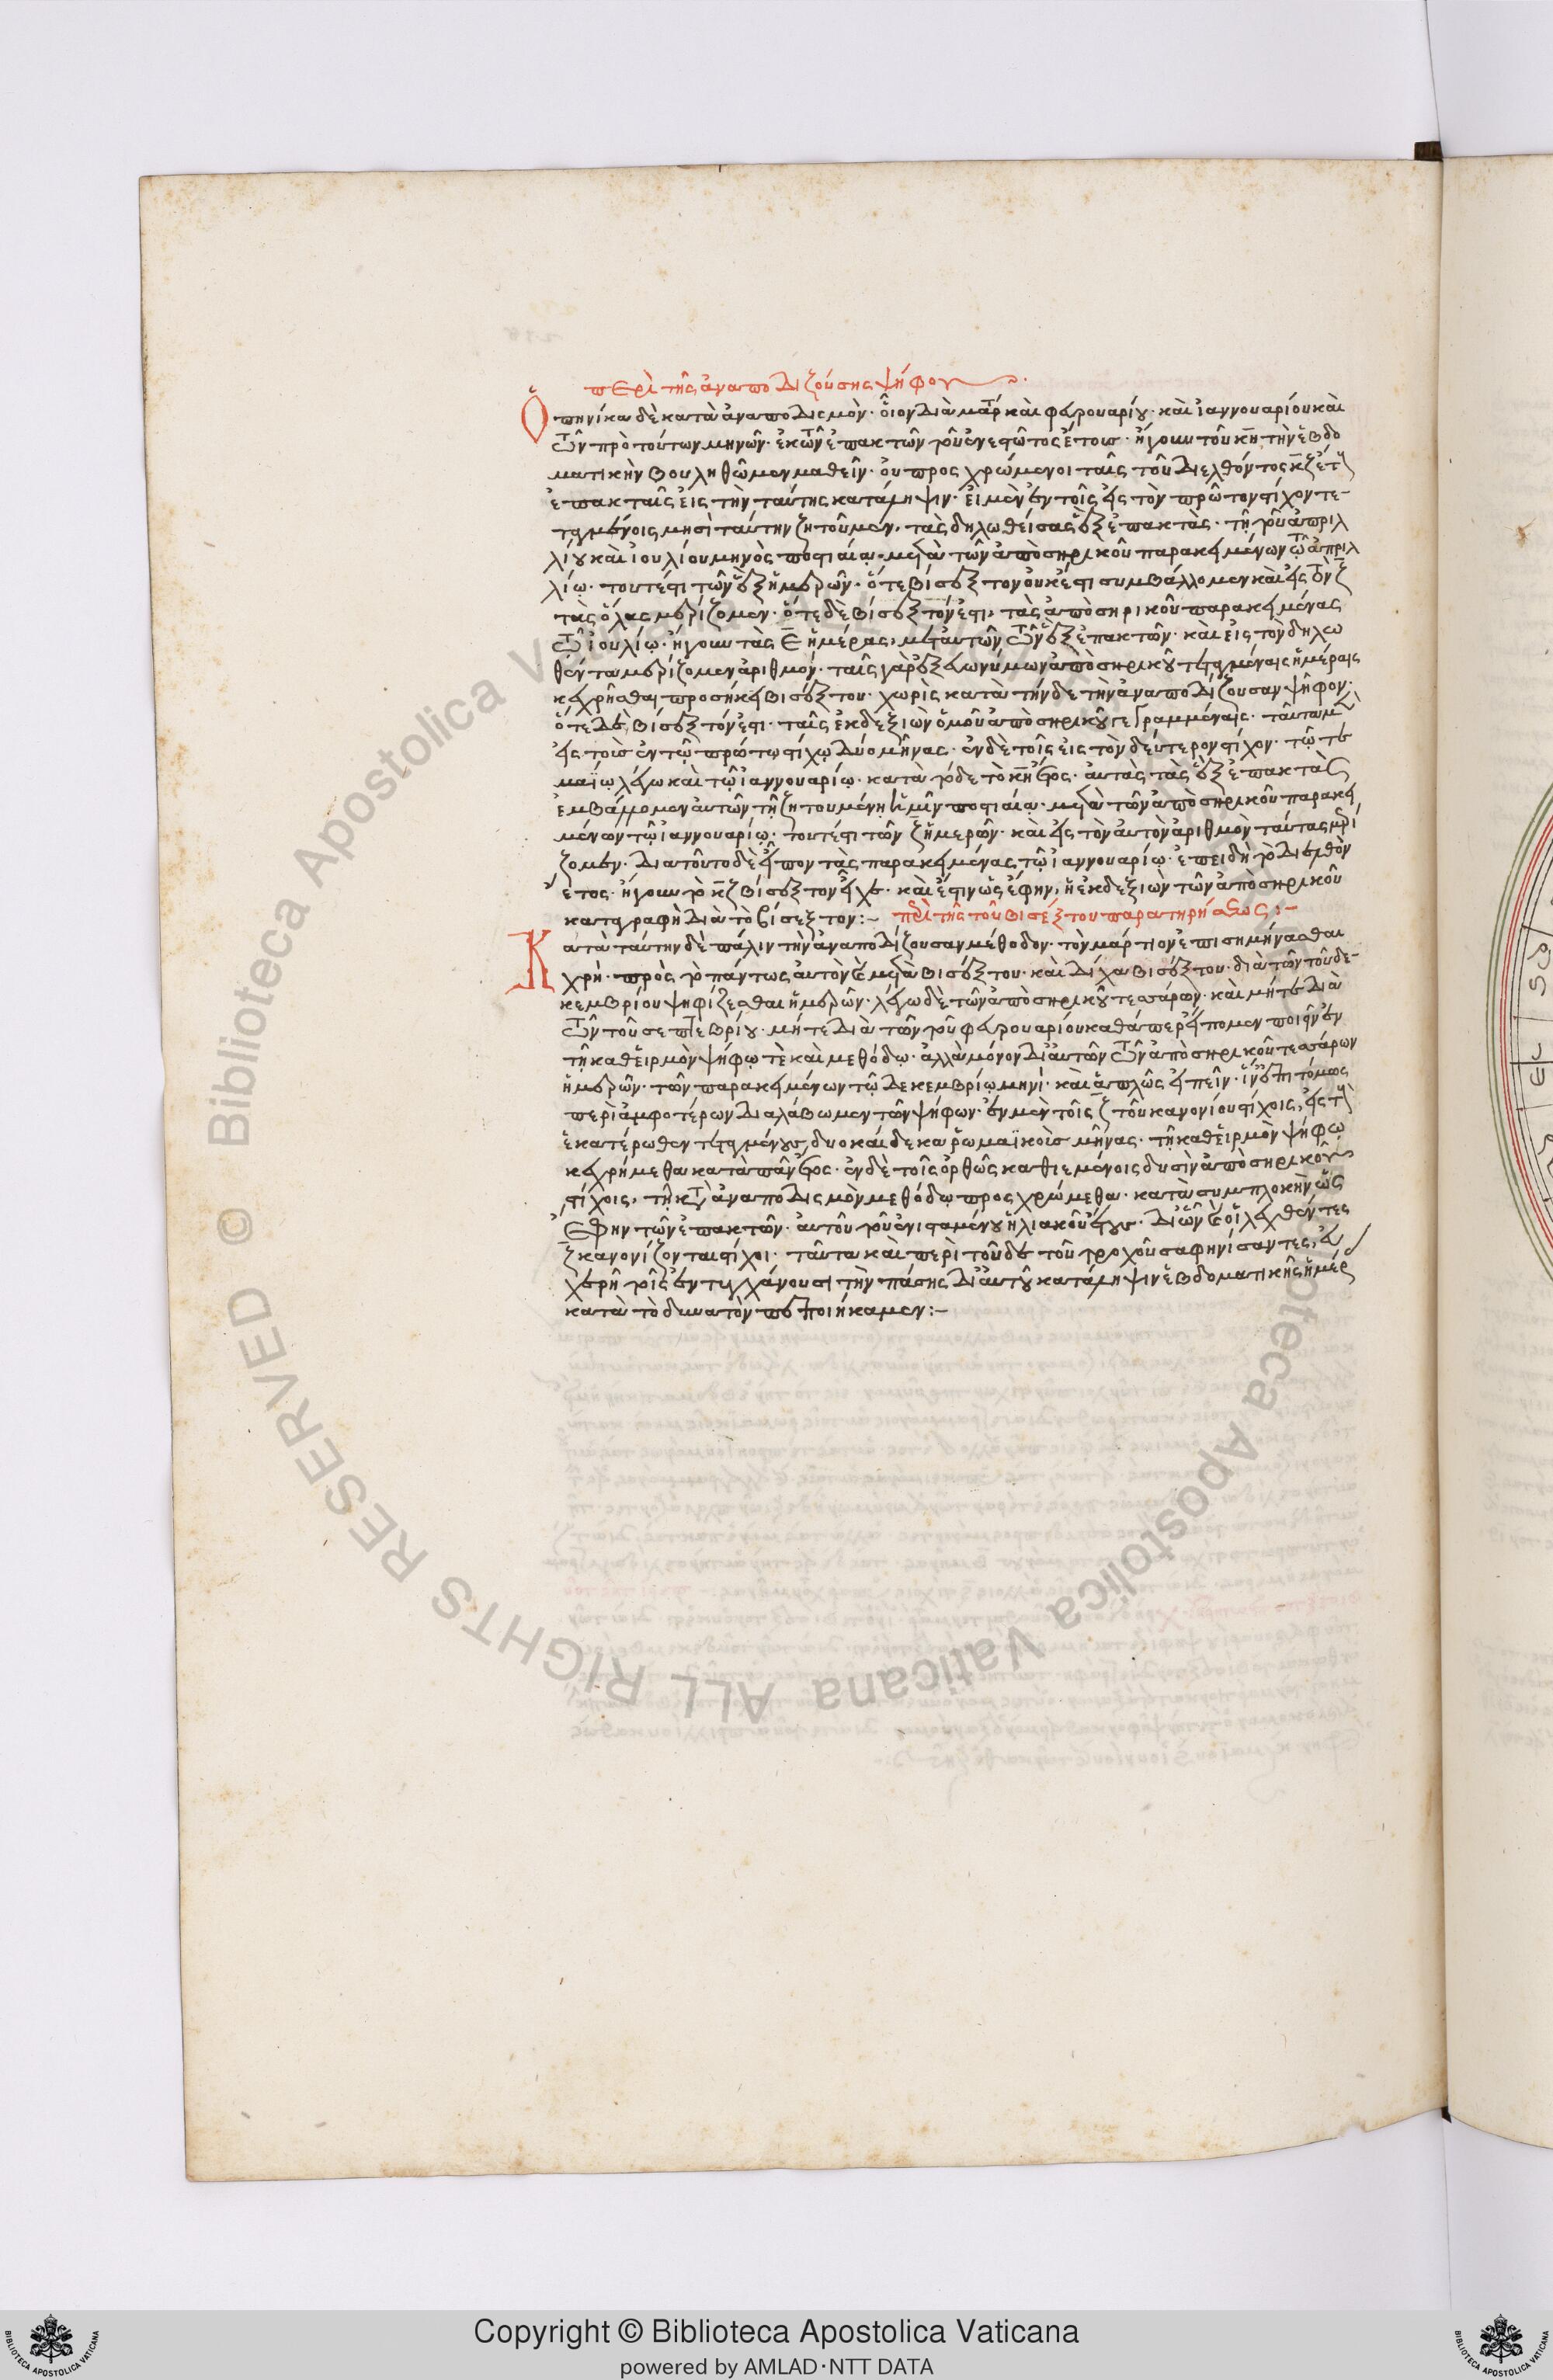 περὶ τῆς ἀναποδιζούσης ψήφου
Ὁπηνίκα δὲ κατὰ ἀναποδισμὸν· οἷον διὰ μαρτ καὶ φευρουαρίου· καὶ ἰαννουαρίου καὶ
τῶν πρὸ τούτων μηνῶν· ἐκ τῶν ἐπακτῶν τοῦ ἐνεστῶτος ἔτους· ἤγουν τοῦ κη τὴν ἑβδο
ματικὴν βουληθῶμεν μαθεῖν· οὐ προσχρώμενοι ταῖς τοῦ διελθόντος κζ ἔτ
ἐπακταῖς εἰς τὴν ταύτης κατάληψιν· εἰ μὲν ἐν τοῖς εἰς τὸν πρῶτον στίχον τε-
ταγμένοις μησὶ ταύτην ζητοῦμεν, τὰς δηλωθείσας ἓξ ἐπακτὰς· τῇ τοῦ ἀπριλ
λίου καὶ ἰουλίου μηνὸς ποστιαία· μετὰ τῶν ἀπὸ σηρικοῦ παρακειμένων τῷ ἀπριλ
λίῳ· τουτέστι τῶν ἓξ ἡμερῶν· ὅτε βίσεξτον οὐκ ἔστι συμβάλλομεν καὶ εἰς τὸν ζ
τὰς ὅλας μερίζομεν· ὅτε δὲ βίσεξτόν ἐστι, τὰς ἀπὸ σηρικοῦ παρακειμένας
τῷ ἰουλίῳ· ἤγουν τὰς ε ἡμέρας, μετ' αὐτῶν τῶν ἓξ ἐπακτῶν· καὶ εἰς τὸν δηλω
θέντα μερίζομεν ἀριθμόν· ταῖς γὰρ ἐξ εὐωνύμων ἀπὸ σηρικοῦ τεταγμέναις ἡμέραις
κεχρῆσθαι προσήκει βισέξτου· χωρὶς κατὰ τήνδε τὴν ἀναποδίζουσαν ψῆφον·
ὅτε δὲ βίσεξτόν ἐστι· ταῖς ἐκ δεξιῶν ὁμοῦ ἀπὸ σηρικοῦ γεγραμμέναις· ταῦτα μ
εἰς τοὺς ἐν τῷ πρώτῳ στίχῳ δύο μῆνας· ἐν δὲ τοῖς εἰς τὸν δεύτερον στίχον· τῷ τε
μαΐῳ λέγω καὶ τῷ ἰαννουαρίῳ· κατὰ τόδε τὸ κη ἔτος· αὐτὰς τὰς ἓξ ἐπακτὰς
ἐμβάλλομεν αὐτῶν τῇ ζητουμένῃ ἡμῖν ποστιαία· μετὰ τῶν ἀπὸ σηρικοῦ παρακει
μένων τῷ ἰαννουαρίῳ· τουτέστι τῶν ζ ἡμερῶν· καὶ εἰς τὸν αὐτὸν ἀριθμὸν ταύτας μερί
ζομεν· διατοῦτο δὲ εἶπον τὰς παρακειμένας τῷ ἰαννουαρίῳ· ἐπειδὴ τὸ διελθὸν
ἔτος· ἤγουν τὸ κζ βίσεξτον εἶχε· καὶ ἔστιν ὡς ἔφην, ἡ ἐκ δεξιῶν τῶν ἀπὸ σηρικοῦ
καταγραφὴ διὰ τὸ βίσεξτον:– περὶ τῆς τοῦ βισέξτου παρατηρήσεως:–
Κατὰ ταύτην δὲ πάλιν τὴν ἀναποδίζουσαν μέθοδον· τὸν μάρτιον ἐπισημήνασθαι
χρὴ· πρὸς τὸ πάντως αὐτὸν καὶ μετὰ βισέξτου· καὶ δίχα βισέξτου· διὰ τῶν τοῦ δε-
κεμβρίου ψηφίζεσθαι ἡμερῶν· λέγω δὲ τῶν ἀπὸ σηρικοῦ τεσσάρων· καὶ μήτε διὰ
τῶν τοῦ σεπτεβρίου· μήτε διὰ τῶν τοῦ φευρουαρίου καθάπερ εἴπομεν ποιεῖν ἐν
τῇ καθ' εἱρμὸν ψήφῳ τὲ καὶ μεθόδῳ· ἀλλὰ μόνον δι' αὐτῶν τῶν ἀπὸ σηρικοῦ τεσσάρων
ἡμερῶν· τῶν παρακειμένων τῷ δεκεμβρίῳ μηνί· καὶ ἁπλῶς εἰπεῖν· ἵν' ἐπιτόμως
περὶ ἀμφοτέρων διαλάβωμεν τῶν ψήφων· ἐν μὲν τοῖς ζ τοῦ κανονίου στίχοις, εἰς τ
ἑκατέρωθεν τεταγμένους δυοκαίδεκα ῥωμαϊκοὺς μῆνας· τῇ καθ' εἱρμὸν ψήφῳ
κεχρήμεθα κατὰ πᾶν ἔτος· ἐν δὲ τοῖς ὀρθῶς καθιεμένοις δυσὶν ἀπὸ σηρικοῦ
στίχοις, τῇ κατὰ ἀναποδισμὸν μεθόδῳ προσχρώμεθα· κατὰ συμπλοκὴν ὡς
ἔφην τῶν ἐπακτῶν· αὐτοῦ τοῦ ἐνισταμένου ἡλιακοῦ ἔτους· δι' ὧν καὶ οἱ λεχθέντες
ζ κανονίζονται στίχοι· ταῦτα καὶ περὶ τοῦδε τοῦ τροχοῦ σαφηνίσαντες, εὐ
χερῆ τοῖς ἐντυγχάνουσι τὴν πάσης δι' αὐτοῦ κατάληψιν ἑβδοματικῆς ἡμέρ
κατὰ τὸ δυνατὸν πεποιήκαμεν:–
Copyright © Biblioteca Apostolica Vaticana
powered by AMLAD·NTT DATA